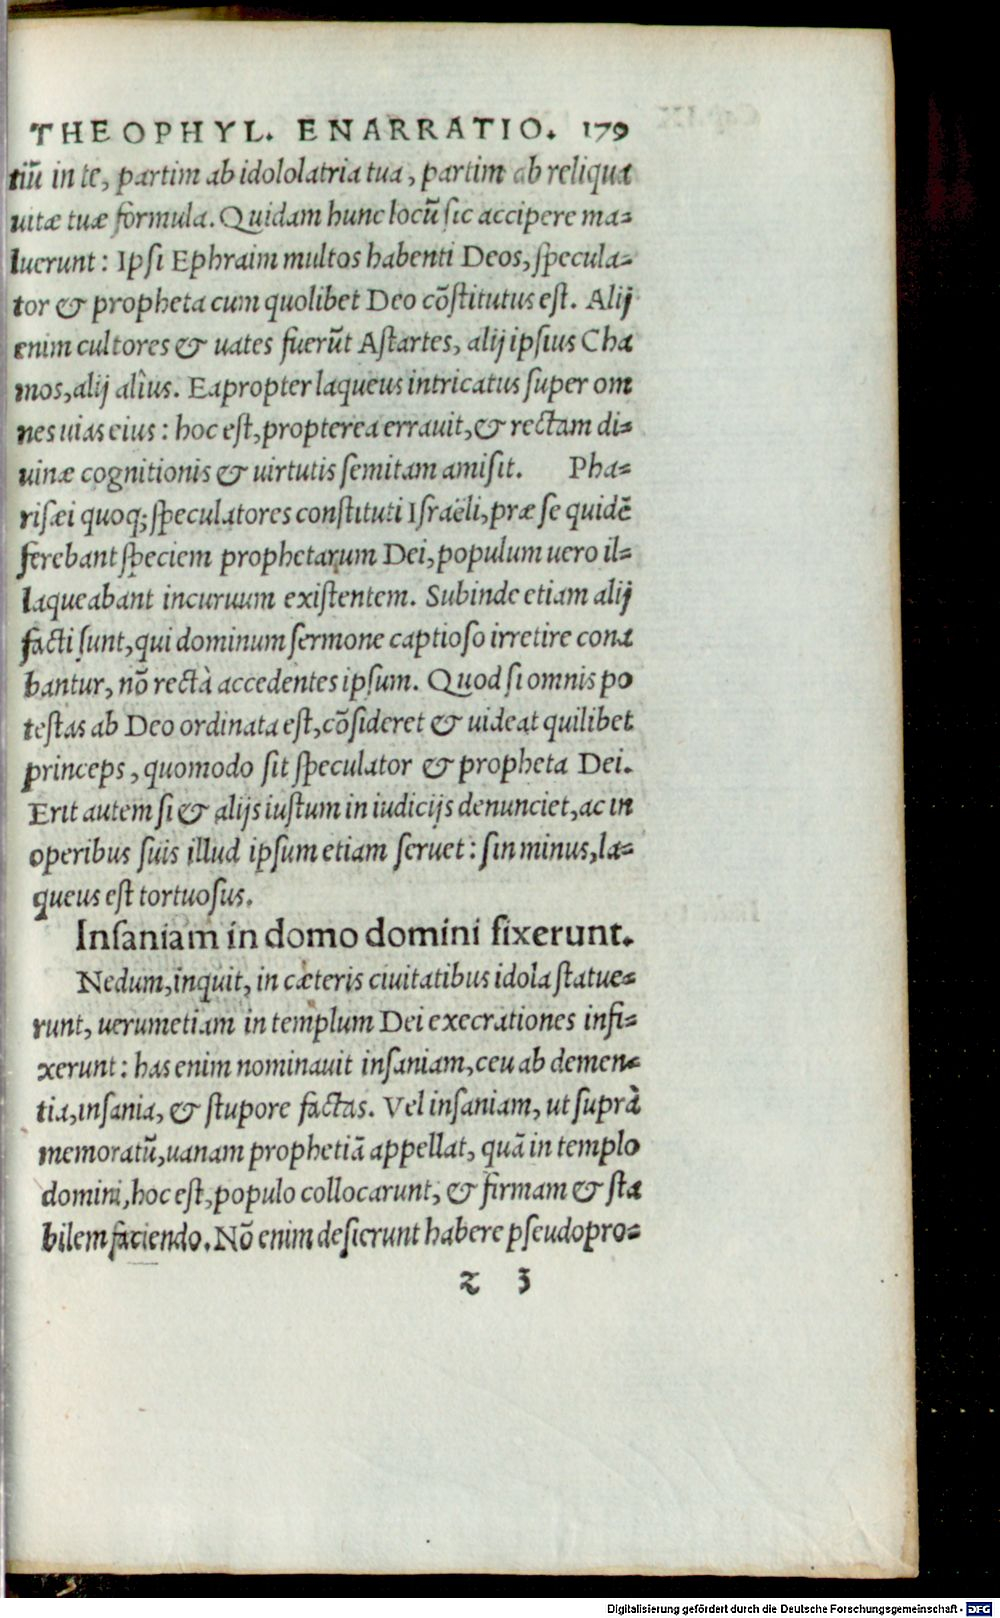 THEOPHYL. ENARRATIO. 179
tiũ in te, partim ab idololatria tua, partim ab reliqua
uitæ tuæ formula. Quidam hunc locũ sic accipere ma-
luerunt: Ipsi Ephraim multos habenti Deos, specula-
tor & propheta cum quolibet Deo cõstitutus est. Alij
enim cultores & uates fuerũt Astartes, alij ipsius Cha
mos, alij alîus. Eapropter laqueus intricatus super om
nes uias eius: hoc est, propterea errauit, & rectam di-
uinæ cognitionis & uirtutis semitam amisit. Pha-
risæi quoq; speculatores constituti Israëli, præ se quidẽ
ferebant speciem prophetarum Dei, populum uero il-
laqueabant incuruum existentem. Subinde etiam alij
facti sunt, qui dominum sermone captioso irretire cona
bantur, nõ rectà accedentes ipsum. Quod si omnis po
testas ab Deo ordinata est, cõsideret & uideat quilibet
princeps, quomodo sit speculator & propheta Dei.
Erit autem si & alijs iustum in iudicijs denunciet, ac in
operibus suis illud ipsum etiam seruet: sin minus, la-
queus est tortuosus.
Insaniam in domo domini fixerunt.
Nedum, inquit, in cæteris ciuitatibus idola statue-
runt, uerumetiam in templum Dei execrationes infi-
xerunt: has enim nominauit insaniam, ceu ab demen-
tia, insania, & stupore factas. Vel insaniam, ut suprà
memoratũ, uanam prophetiã appellat, quã in templo
domini, hoc est, populo collocarunt, & firmam & sta
bilem faciendo. Nõ enim desierunt habere pseudopro-
z 3
Digitalisierung gefördert durch die Deutsche Forschungsgemeinschaft - DFG